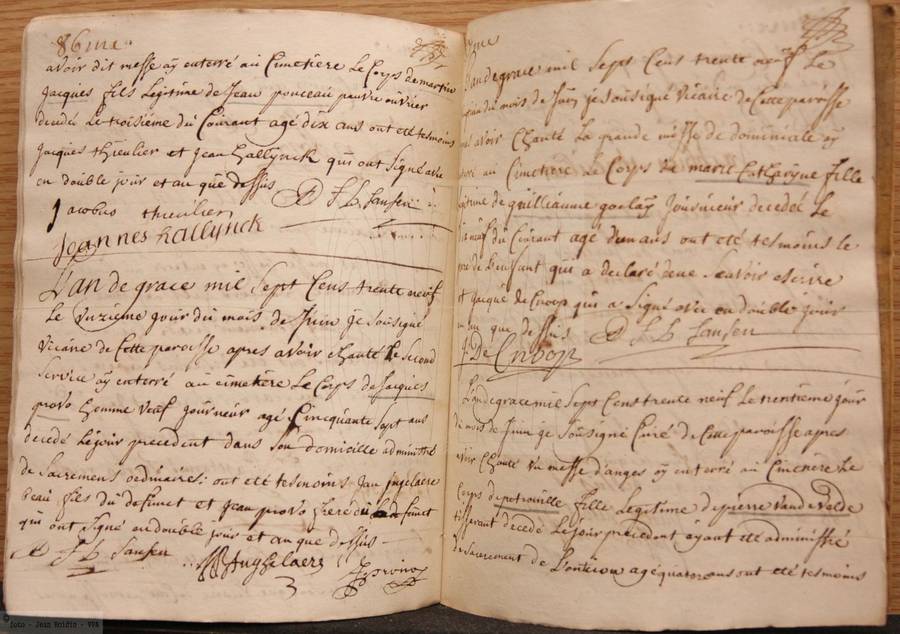 86me
avoir dit messe aÿ enterré au Cimetiere Le Corps de martin
jacques fils Légitime de Jean ponceau peuvre ouvrier
decedé Le troisiéme du Courant agé dix ans ont eté tesmoins
Jacques thieulier et Jean hallynck qui ont Signé avec
en double jour et an que dessus
D F L Jansen
Jacobus thieulier
Joannes hallynck
L'an de grace mil sept Cens trente neuf
Le unzieme jour du mois de Juin je sousigné
vicaire de Cette paroisse apres avoir chanté Le second
service aÿ enterré au cimetiere Le Corps de Jacques
provo homme veuf journeur agé Cincquante sept ans
decedé Le jour precedent dans son domicille administré
de Sacremens ordinaires: ont eté tesmoins Jan jngelaere
beau fils du defunct et jean provo frere du defunct
qui ont Signé en double jour et an que dessus
D F L Jansen
Jnghelaere
J provo
me
L'an de grace mil sept Cens trente neuf Le
du mois de Juin je sousigné vicaire de Cette paroisse
avoir Chanté La grande messe de dominicale aÿ
au Cimetiere Le Corps de marie Catharyne fille
Légitime de guilliaume journeur decedée Le
neuf du Courant agé d'un ans ont eté tesmoins le
pere de L'enfant qui a declaré de ne Scavoir escrire
et jacque de Cnoop qui a Signé avec en double jour
et an que dessus D F L Jansen
J: De Cnoop
L'an de grace mil sept Cens trente neuf Le trentiéme jour
du mois de Juin je Sousigné Curé de Cette paroisse apres
avoir Chanté un messe d'anges aÿ enterré au Cimetiere Le
Corps de petronille fille Légitime de pierre Vande Velde
tisserant decedé Le jour precedent ayant eté administré
de Sacrement de L'onction agé quatorze ans ont eté tesmoins
foto - Jean Roidin - VVA